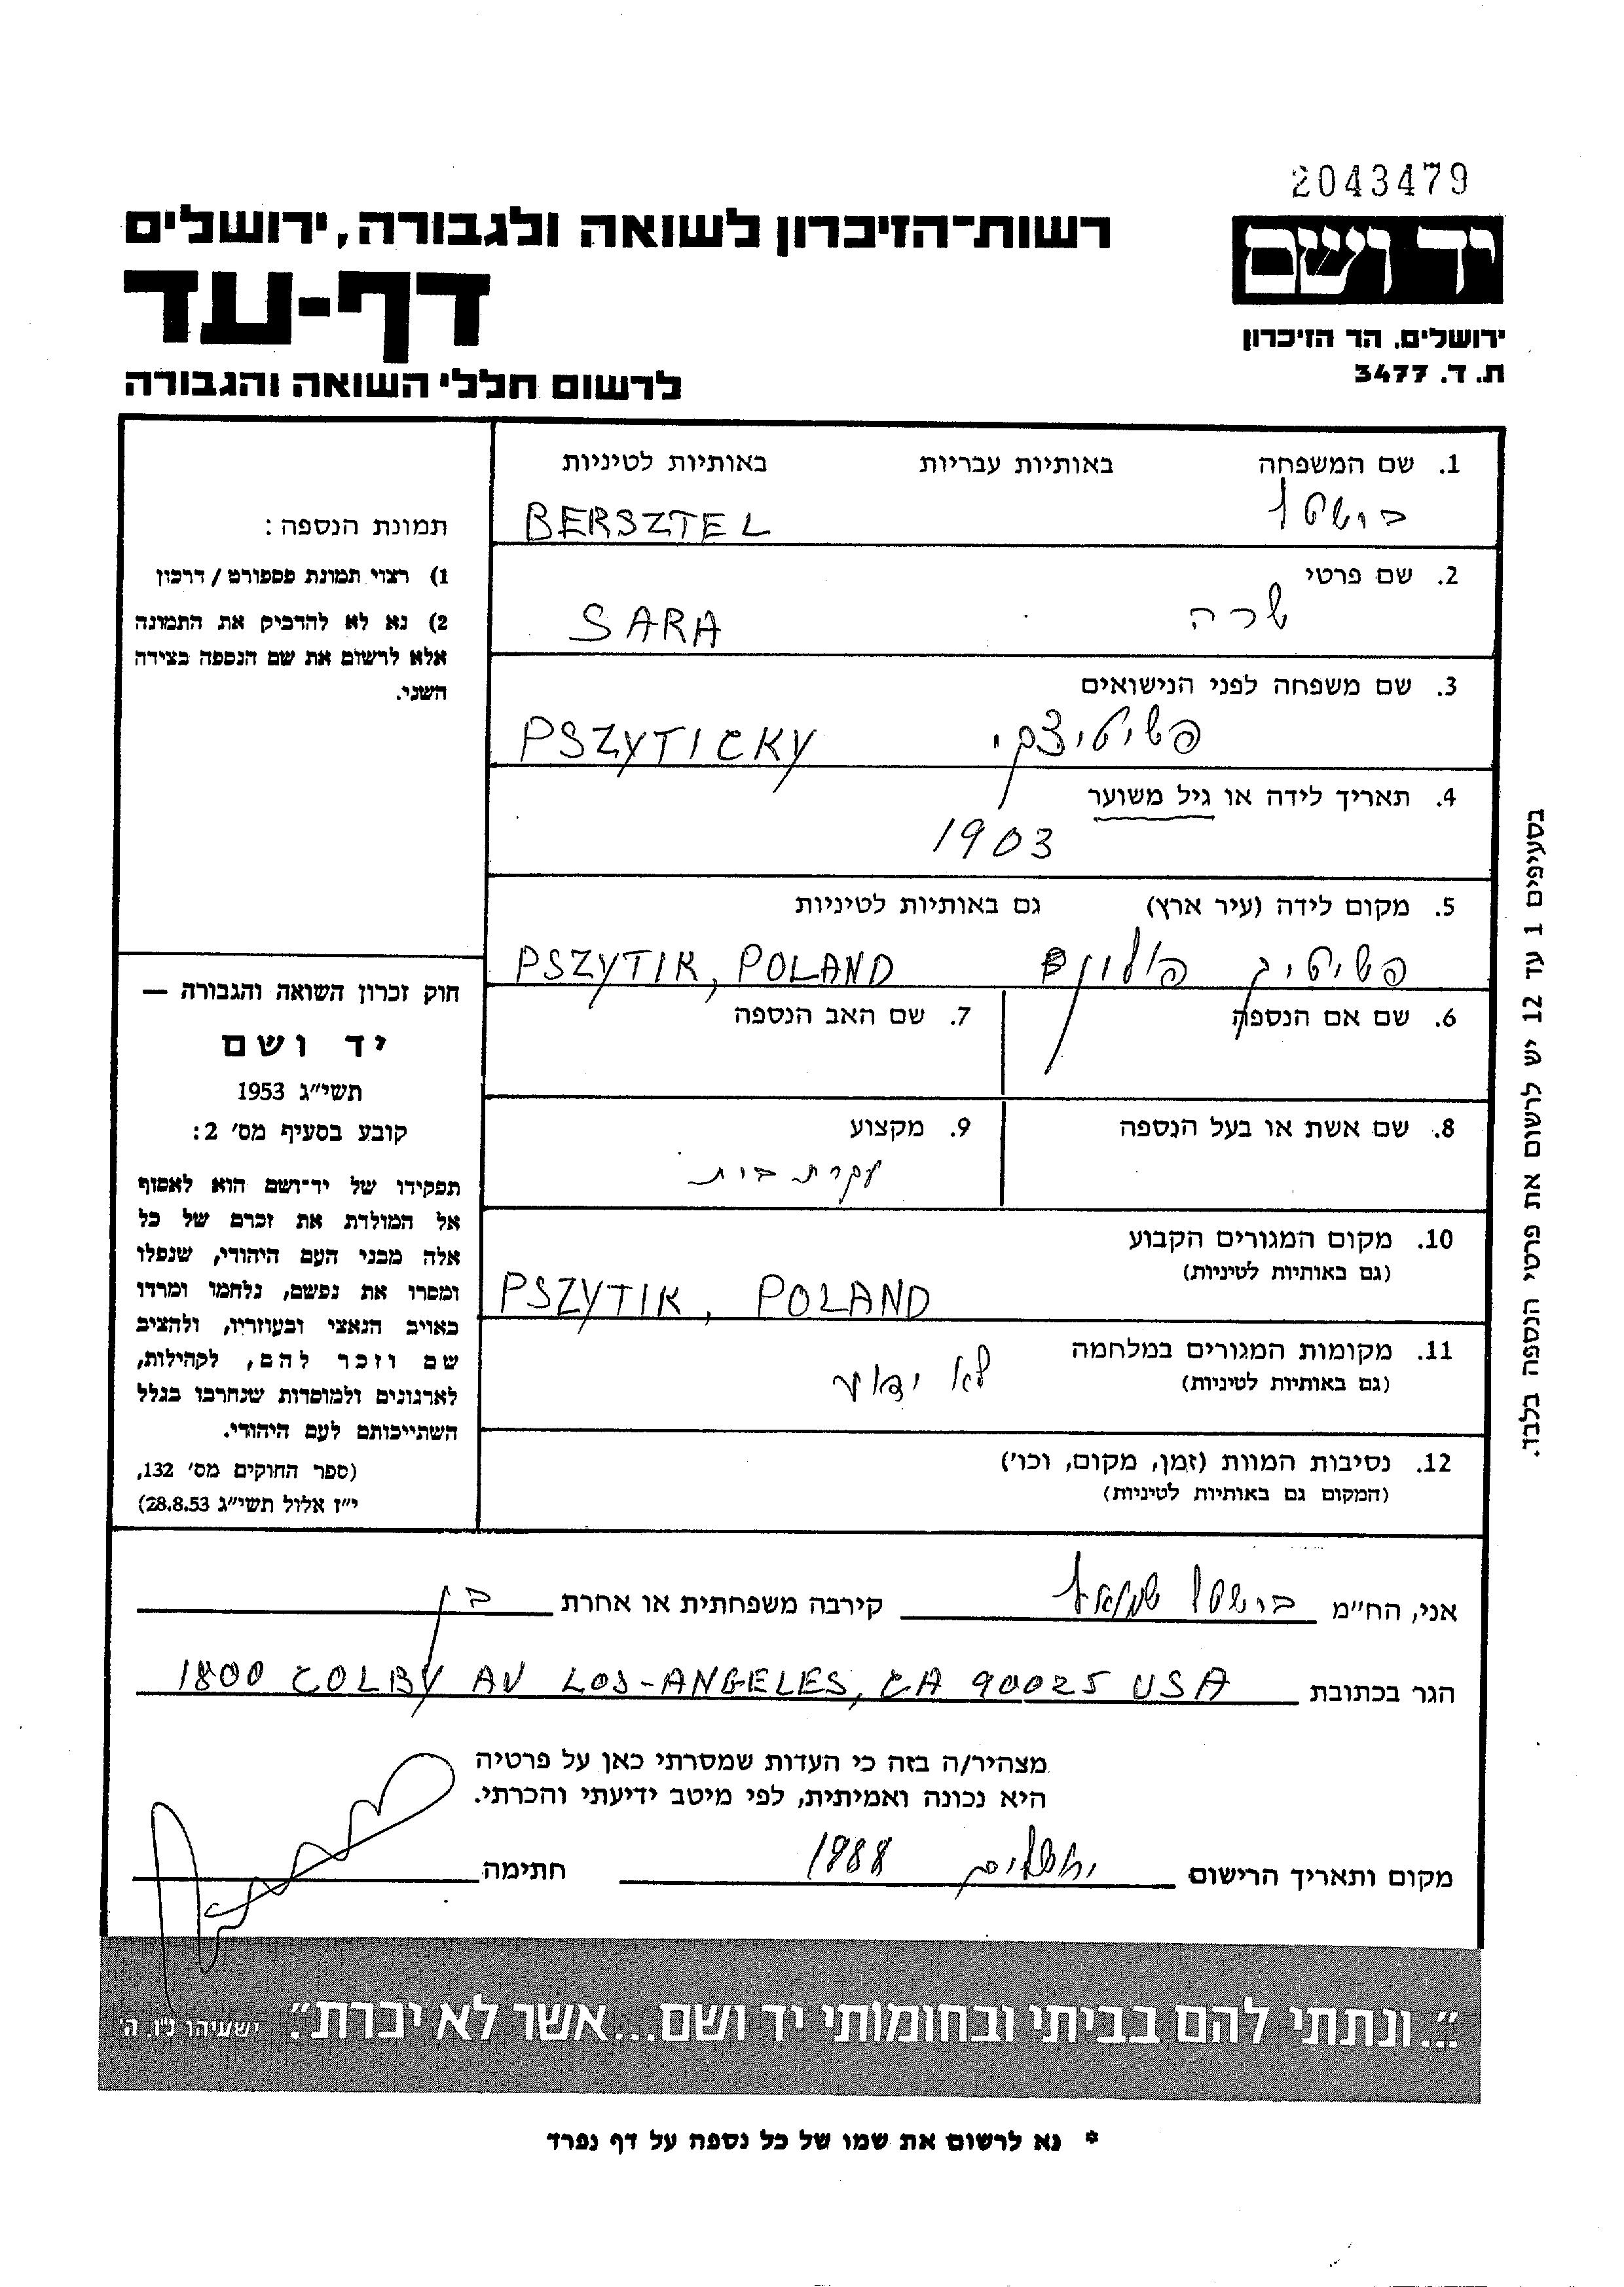 2043479
רשות־הזיכרון לשואה ולגבורה, ירושלים
יד ושם
דף-עד
ירושלים, הר הזיכרון
ת. ד. 3477
לרשום חללי השואה והגבורה
1. שם המשפחה באותיות עבריות באותיות לטיניות
ברשטל BERSZTEL
2. שם פרטי
שרה SARA
3. שם משפחה לפני הנישואים
פשיטיצקי PSZYTICKY
4. תאריך לידה או גיל משוער
1903
5. מקום לידה (עיר ארץ) גם באותיות לטיניות
פשיטיק PSZYTIK, POLAND
6. שם אם הנספה
7. שם האב הנספה
8. שם אשת או בעל הנספה
9. מקצוע
עקרת בית
10. מקום המגורים הקבוע
(גם באותיות לטיניות)
PSZYTIK, POLAND
11. מקומות המגורים במלחמה
(גם באותיות לטיניות)
לא ידוע
12. נסיבות המוות (זמן, מקום, וכו')
(המקום גם באותיות לטיניות)
תמונת הנספה:
1) רצוי תמונת פספורט / דרכון
2) נא לא להדביק את התמונה
אלא לרשום את שם הנספה בצידה
השני.
חוק זכרון השואה והגבורה —
יד ושם
תשי"ג 1953
קובע בסעיף מס' 2:
תפקידו של יד־ושם הוא לאסוף
אל המולדת את זכרם של כל
אלה מבני העם היהודי, שנפלו
ומסרו את נפשם, נלחמו ומרדו
באויב הנאצי ובעוזריו, ולהציב
שם וזכר להם, לקהילות,
לארגונים ולמוסדות שנחרבו בגלל
השתייכותם לעם היהודי.
(ספר החוקים מס' 132,
י"ז אלול תשי"ג 28.8.53)
בסעיפים 1 עד 12 יש לרשום את פרטי הנספה בלבד.
אני, הח"מ ברשטל שמואל קירבה משפחתית או אחרת בן
הגר בכתובת 1800 COLBY AV LOS-ANGELES, CA 90025 USA
מצהיר/ה בזה כי העדות שמסרתי כאן על פרטיה
היא נכונה ואמיתית, לפי מיטב ידיעתי והכרתי.
מקום ותאריך הרישום ירושלים 1988 חתימה
"...ונתתי להם בביתי ובחומותי יד ושם...אשר לא יכרת". ישעיהו נ"ו, ה'
* נא לרשום את שמו של כל נספה על דף נפרד